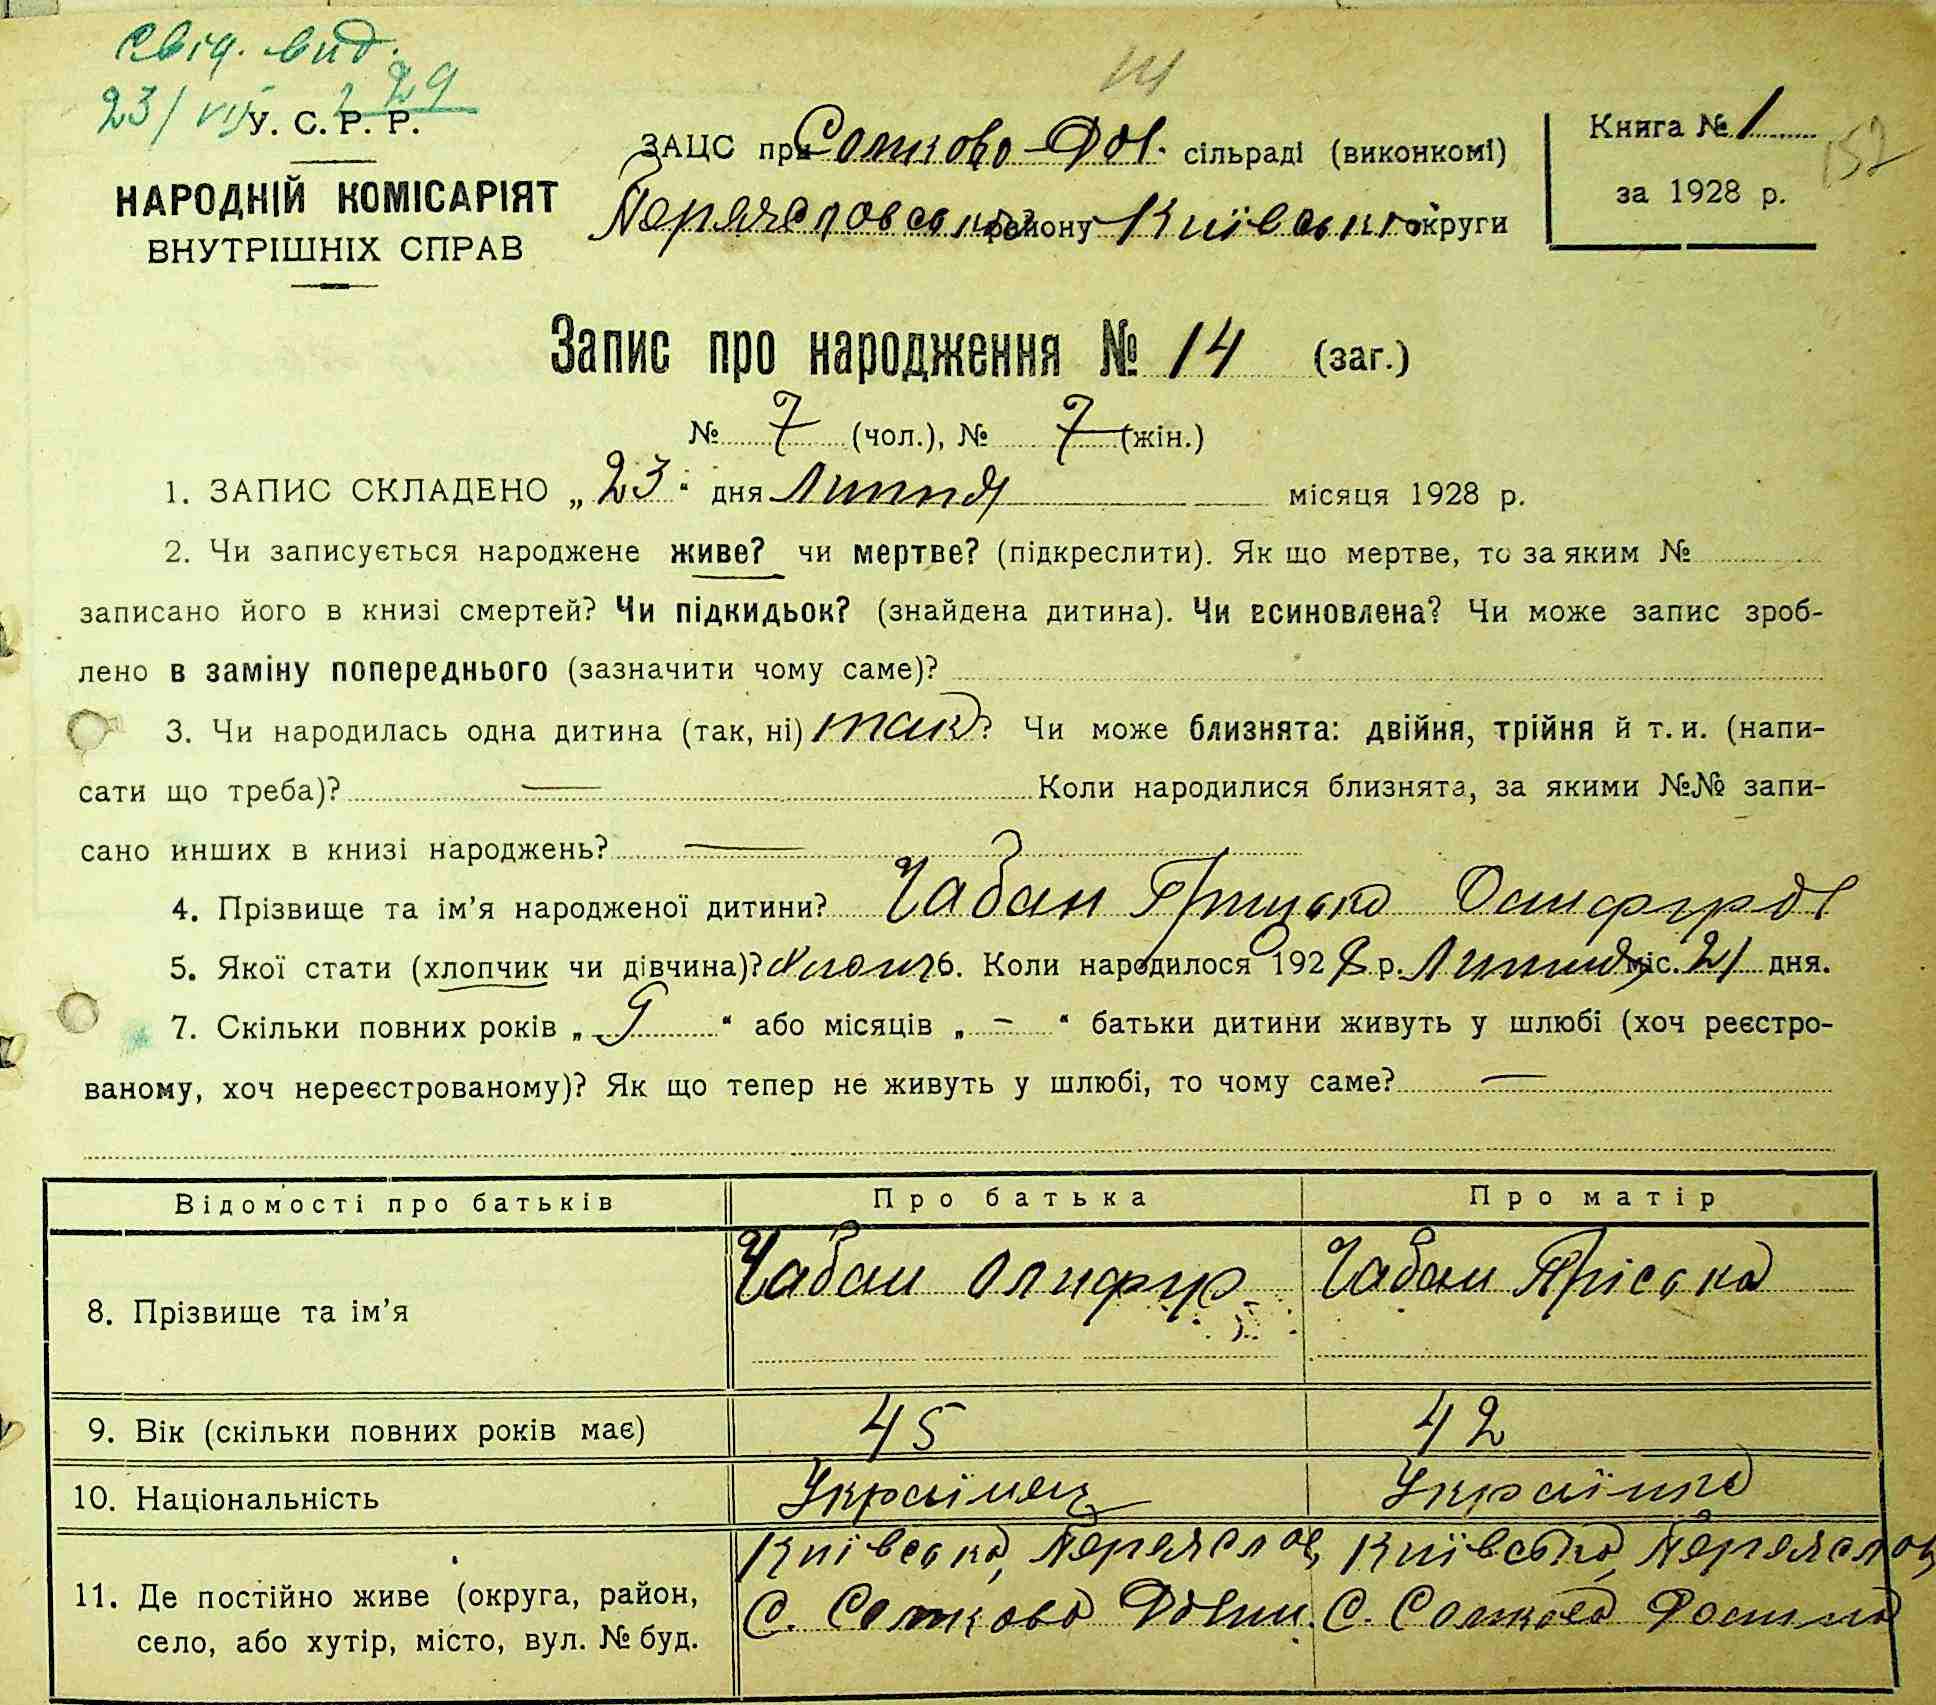 Свід. вид.
23/VII 29
У. С. Р. Р.
НАРОДНІЙ КОМІСАРІЯТ
ВНУТРІШНІХ СПРАВ
ЗАЦС при Сомково-Дол. сільраді (виконкомі)
Переяславськ району Київськ округи
Книга № 1
за 1928 р.
152
Запис про народження № 14 (заг.)
№ 7 (чол.), № 7 (жін.)
1. ЗАПИС СКЛАДЕНО „23“ дня Липня місяця 1928 р.
2. Чи записується народжене живе? чи мертве? (підкреслити). Як що мертве, то за яким №
записано його в книзі смертей? Чи підкидьок? (знайдена дитина). Чи всиновлена? Чи може запис зроб-
лено в заміну попереднього (зазначити чому саме)?
3. Чи народилась одна дитина (так, ні) так? Чи може близнята: двійня, трійня й т. и. (напи-
сати що треба)? — Коли народилися близнята, за якими №№ запи-
сано инших в книзі народжень? —
4. Прізвище та ім’я народженої дитини? Чабан Грицько
5. Якої стати (хлопчик чи дівчина)? хлопч 6. Коли народилося 1928 р. Липня міс. 21 дня.
7. Скільки повних років „9“ або місяців „-“ батьки дитини живуть у шлюбі (хоч реєстро-
ваному, хоч нереєстрованому)? Як що тепер не живуть у шлюбі, то чому саме? —
Відомості про батьків Про батька Про матір
8. Прізвище та ім’я Чабан Олифір Чабан Пріська
9. Вік (скільки повних років має) 45 42
10. Національність Українец Українка
Київська, Переяслов, Київська, Переяслов
11. Де постійно живе (округа, район,
С. Сомкова Долин. С. Сомкова Долина
село, або хутір, місто, вул. № буд.